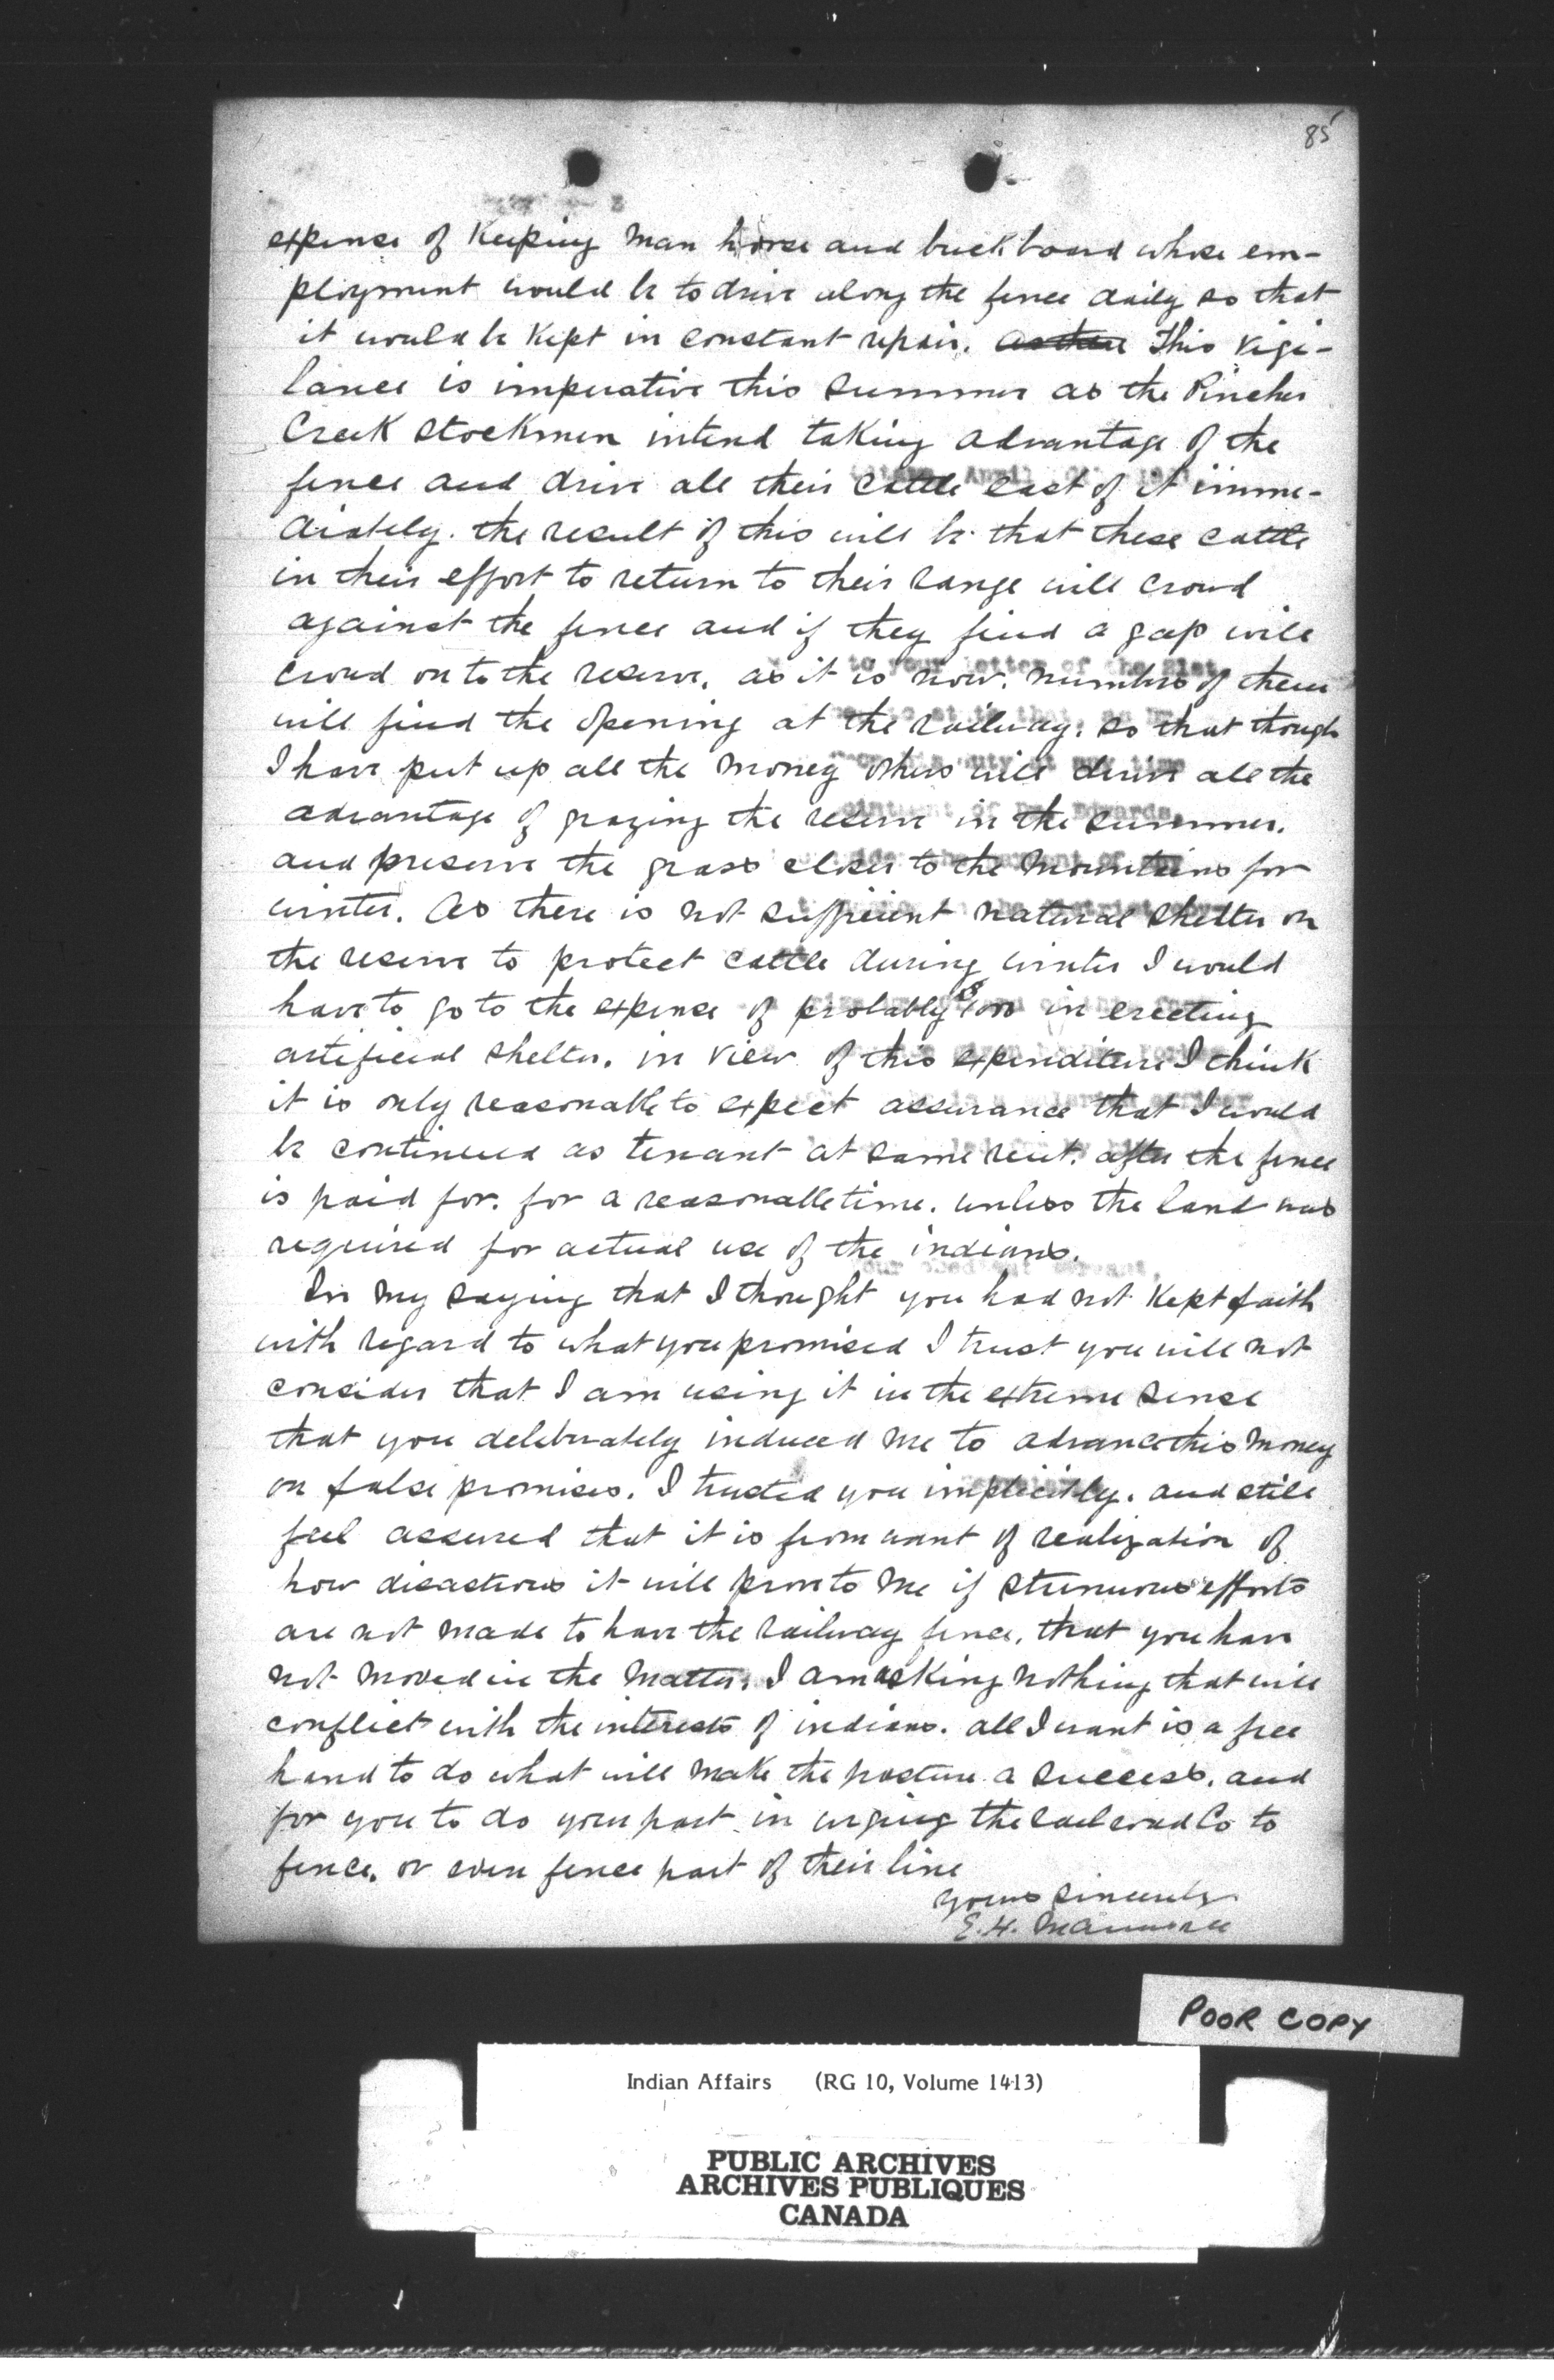 85
expense of keeping man horse and buckboard whose em-
ployment would be to drive along the fence daily so that
it would be kept in constant repair. as there This vigi-
lance is imperative this summer as the Pincher
Creek stockmen intend taking advantage of the
fence and drive all their cattle east of it imme-
diately. the result of this will be that these cattle
in their effort to return to their range will crowd
against the fence and if they find a gap will
crowd on to the reserve. as it is now. numbers of them
will find the opening at the railway. so that though
I have put up all the money others will derive all the
advantage of grazing the reserve in the summer.
and preserve the grass closer to the mountains for
winter. As there is not sufficient natural shelter on
the reserve to protect cattle during winter I would
have to go to the expense of probably in erecting
artificial shelter. in view of this expenditure I think
it is only reasonable to expect assurance that I would
be continued as tenant at same rent. after the fence
is paid for. for a reasonable time. unless the land was
required for actual use of the indians.
In my saying that I thought you had not kept faith
with regard to what you promised I trust you will not
consider that I am using it in the extreme sense
that you deliberately induced me to advance this money
on false promises. I trusted you implicitly. and still
feel assured that it is from want of realization of
how disastrous it will prove to me if strenuous efforts
are not made to have the railway fence. that you have
not moved in the matter. I am asking nothing that will
conflict with the interests of indians. all I want is a free
hand to do what will make the pasture a success. and
for you to do your part in urging the railroad Co to
fence. or even fence part of their line
yours sincerely
E.H. Maunsell
POOR COPY
Indian Affairs (RG 10, Volume 1413)
PUBLIC ARCHIVES
ARCHIVES PUBLIQUES
CANADA